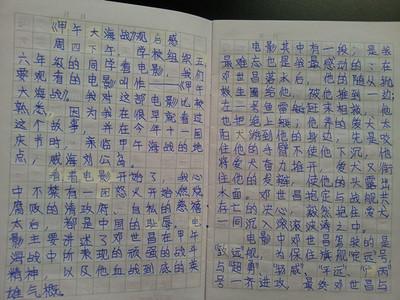 《甲午大海战》观后感
周四下午，学校组织五、
六年级的同学看电影，我们
要观看的电影叫作——《甲午
大海战》。我对这部电影比较
熟悉，因为我在很早就看过
这个故事，并在今年十一国
庆节时，亲临甲午海战的地
点，威海刘公岛。
看着电影开始了，我心
中不禁有一团怒火开始燃烧
腐败的清政府、自私的慈禧
太后，都是中国的耻辱。电
影主要讲述了邓世昌在甲午
海战中所表现的血战到底的
精神，以及他英勇顽强的斗
雄气概。
电影其中有一段，是我
最难忘也是最感动的：在
邓世昌落水后，他的随从抛
救生圈给他，被他推到一边；
在一条鱼雷艇班来相救，他
也拒绝上艇；他养的爱犬太
阳犬游到他的身边，先是咬
住他的手臂不使他下沉，他
将爱犬奋力推开，爱犬又衔
住他的发辫，使他的头露出
水面。邓世昌抱定与战舰共
存亡的决心，毅然抱住爱犬
一同沉入滚滚波涛之中。
电影中邓世昌驾驶的是
“致远”舰，为保护旗舰“定远”号